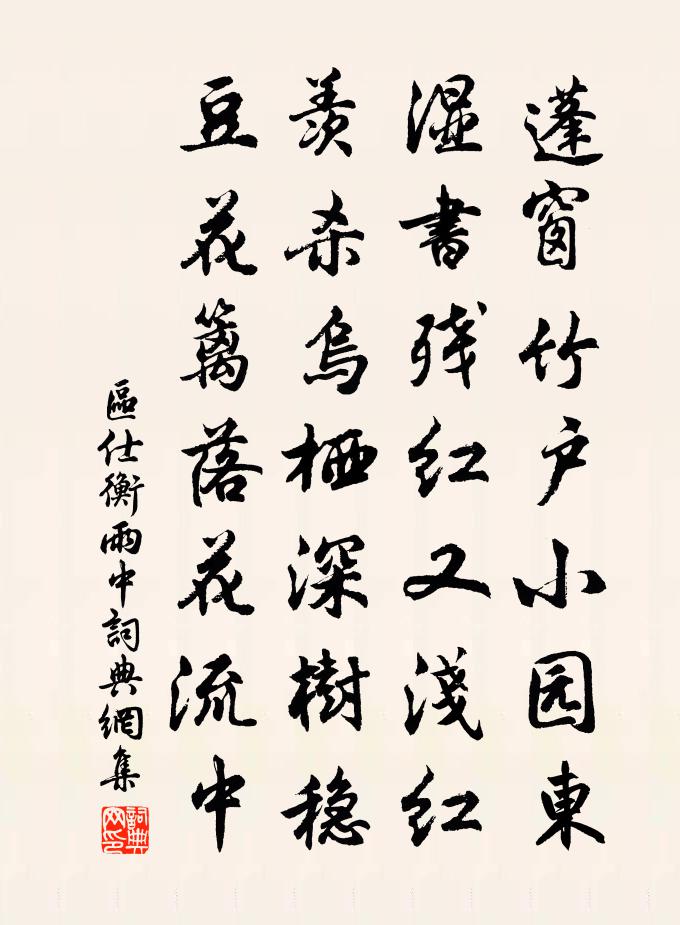 蓬窗竹户小园東
濕書残红又淺红
羨杀烏栖深樹稳
豆花籬落花流中
區仕衡雨中詞典網集
詞典网印